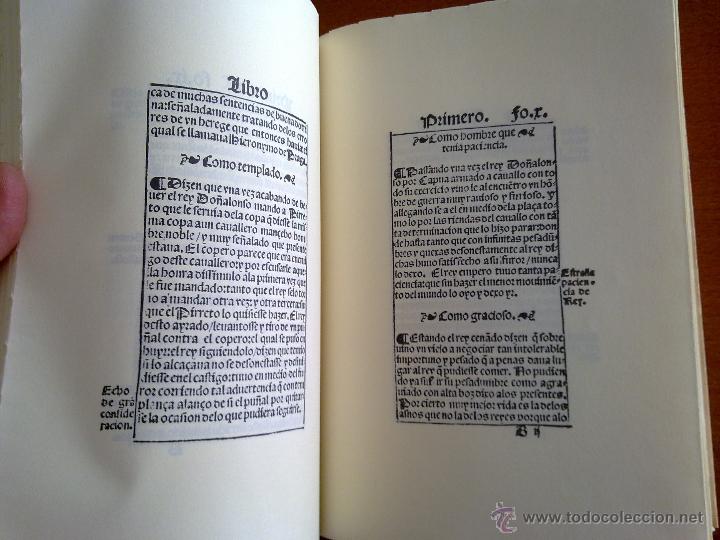 Libro
ca de muchas sentencias de buena dotri
na: señaladamente tratando delos erro
res de vn herege que entonces hauia el
qual se llamaua Hieronymo de Praga.
Como templado.
¶ Dizen que vna vez acabando de be
uer el rey Doñalonso mando a Pirre
to que le seruia dela copa q̃ diesse la mis
ma copa a un cauallero mancebo hom
bre noble/y muy señalado que presente
estaua. El copero parece que era enemi
go deste cauallero: y por escusarse aque
lla honra dissimulo ala primera vez que
le fue mandado: tanto que el rey selo tor
no a mandar otra vez y otra tercera sin
que el Pirreto lo quisiesse hazer. El rey
desto ayrado/leuantosse y tiro de vn pu
ñal contra el copero: el qual se puso en
huyr: y el rey siguiendolo/y diziendo q̃
si lo alcaçaua no se desonestasse y desme
diesse en el castigo: tuuo en medio del fu
ror corriendo tal aduertencia q̃ con tem
plança alanço de si el puñal por quitar
se la ocasion delo que pudiera seguirse.
Echo
de grã
conside
racion.
Primero. fo.x.
Como hombre que
tenia paciencia.
¶ Passando vna vez el rey Doñalon
so por Capua armado a cauallo con to
do su exercito vino le al encuẽtro vn hõ
bre de guerra muy rauioso y furioso. y
allegando se a el en medio dela plaça to
lo por las riendas del cauallo con tãta
determinacion que lo hizo parar: don
de hasta tanto que con infinitas pesadũ
bres y quexas desonestamente al rey
dichas huuo satisfecho a su furor/nunca
lo dexo. El rey empero tuuo tanta pa
ciencia: que sin hazer el menor mouimiẽ
to del mundo lo oyo y dexo yr.
Estraña
pacien
cia de
Rey.
Como gracioso.
¶ Estando el rey cenãdo dizen q̃ sobre
uino vn viejo a negociar tan intolerable
importuno y pesado q̃ a penas daua lu
gar al rey q̃ pudiesse comer. No pudien
do ya sufrir su pesadumbre como agra
uiado con alta boz dixo alos presentes.
Por cierto muy mejor vida es la delos
asnos que no la delos reyes porque alo
B ij
www.todocoleccion.net